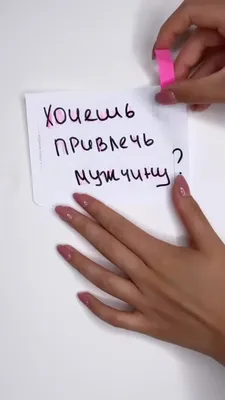 Хочешь
привлечь
мужчину?